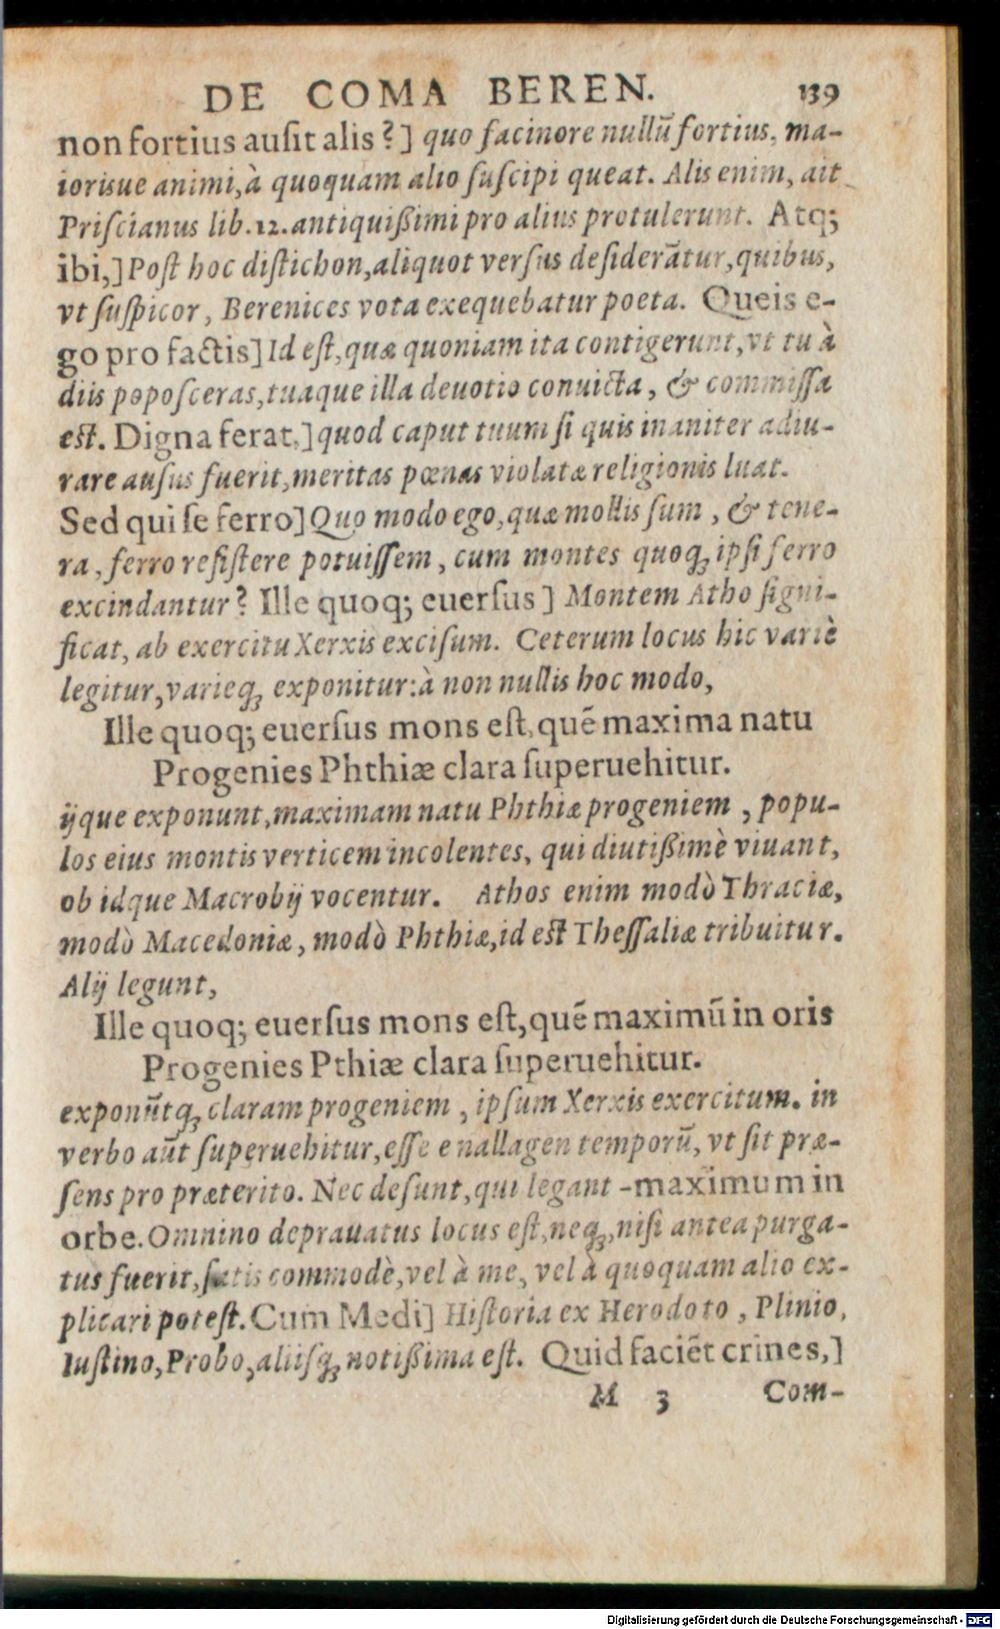 DE COMA BEREN. 139
non fortius auſit alis?] quo facinore nullū fortius, ma-
iorisue animi, à quoquam alio ſuſcipi queat. Alis enim, ait
Priſcianus lib. 12. antiquißimi pro alius protulerunt. Atq;
ibi,] Poſt hoc diſtichon, aliquot verſus deſiderātur, quibus,
vt ſuſpicor, Berenices vota exequebatur poeta. Queis e-
go pro factis] Id eſt, quæ quoniam ita contigerunt, vt tu à
diis popoſceras, tuaque illa deuotio conuicta, & commiſſa
eſt. Digna ferat,] quod caput tuum ſi quis inaniter adiu-
rare auſus fuerit, meritas pœnas violatæ religionis luat.
Sed qui ſe ferro] Quo modo ego, quæ mollis ſum, & tene-
ra, ferro reſiſtere potuiſſem, cum montes quoq; ipſi ferro
excindantur? Ille quoq; euerſus] Montem Atho ſigni-
ficat, ab exercitu Xerxis exciſum. Ceterum locus hic variè
legitur, varieq; exponitur: à non nullis hoc modo,
Ille quoq; euerſus mons eſt, quē maxima natu
Progenies Phthiæ clara ſuperuehitur.
ijque exponunt, maximam natu Phthiæ progeniem, popu-
los eius montis verticem incolentes, qui diutißimè viuant,
ob idque Macrobij vocentur. Athos enim modò Thraciæ,
modò Macedoniæ, modò Phthiæ, id eſt Theſſaliæ tribuitur.
Alij legunt,
Ille quoq; euerſus mons eſt, quē maximū in oris
Progenies Pthiæ clara ſuperuehitur.
exponūtq; claram progeniem, ipſum Xerxis exercitum. in
verbo aūt ſuperuehitur, eſſe enallagen temporū, vt ſit præ-
ſens pro præterito. Nec deſunt, qui legant -maximum in
orbe. Omnino deprauatus locus eſt, neq;, niſi antea purga-
tus fuerit, ſatis commodè, vel à me, vel à quoquam alio ex-
plicari poteſt. Cum Medi] Hiſtoria ex Herodoto, Plinio,
Iuſtino, Probo, aliiſq; notißima eſt. Quid faciēt crines,]
M 3 Com-
Digitalisierung gefördert durch die Deutsche Forschungsgemeinschaft - DFG